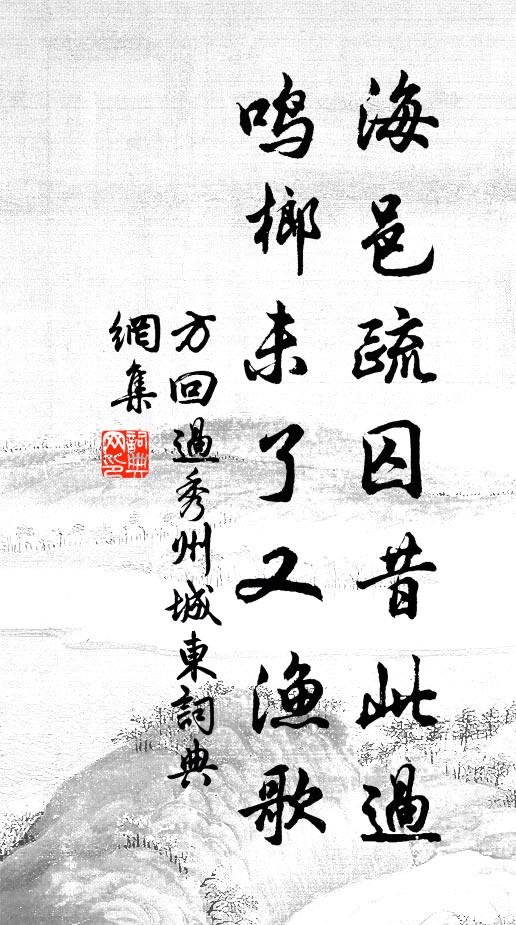 海邑疏囚昔此過
鳴榔未了又漁歌
方回過秀州城東詞典
網集
詞典
网印